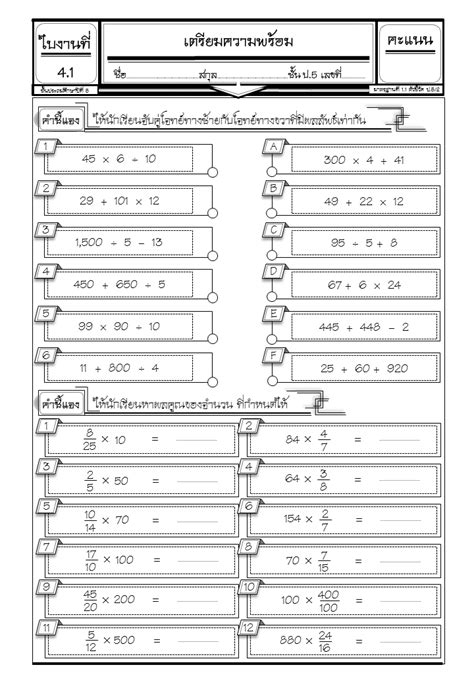 ใบงานที่
4.1
เตรียมความพร้อม
คะแนน
ชื่อ สกุล ชั้น ป.5 เลขที่
ชั้นประถมศึกษาปีที่ 5
มาตรฐานที่ 1.1 ตัวชี้วัด ป.5/2
คำชี้แจง ให้นักเรียนจับคู่โจทย์ทางซ้ายกับโจทย์ทางขวาที่มีผลลัพธ์เท่ากัน
1 45 × 6 ÷ 10
A 300 × 4 + 41
2 29 + 101 × 12
B 49 + 22 × 12
3 1,500 ÷ 5 – 13
C 95 ÷ 5 + 8
4 450 + 650 ÷ 5
D 67 + 6 × 24
5 99 × 90 ÷ 10
E 445 + 448 – 2
6 11 + 800 ÷ 4
F 25 + 60 + 920
คำชี้แจง ให้นักเรียนหาผลคูณของจำนวน ที่กำหนดให้
1 8/25 × 10 =
2 84 × 4/7 =
3 2/5 × 50 =
4 64 × 3/8 =
5 10/14 × 70 =
6 154 × 2/7 =
7 17/10 × 100 =
8 70 × 7/15 =
9 45/20 × 200 =
10 100 × 400/100 =
11 5/12 × 500 =
12 880 × 24/16 =